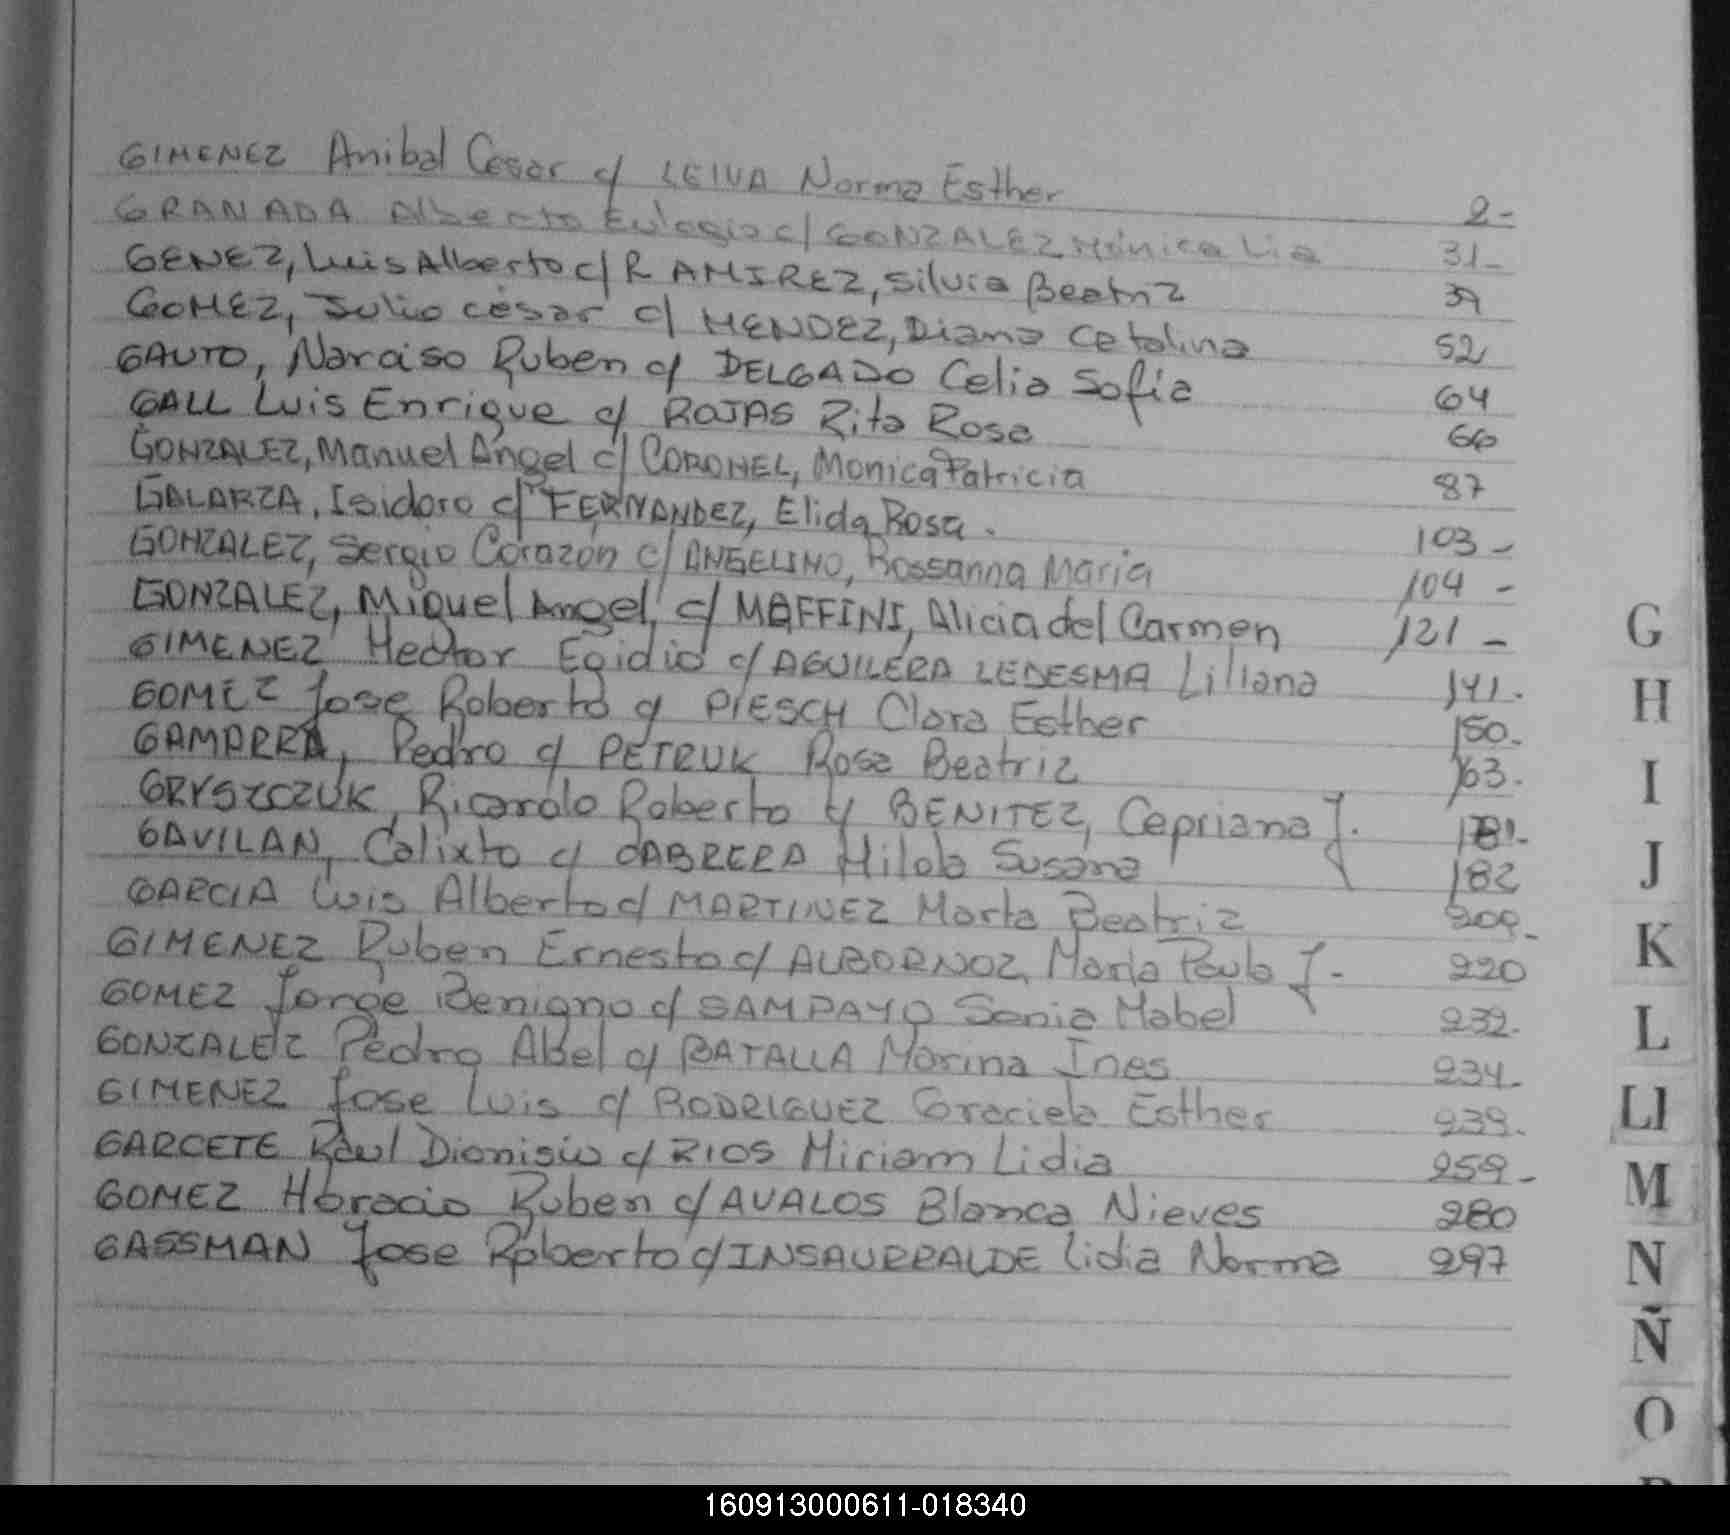 GIMENEZ Anibal Cesar c/ LEIVA Norma Esther 2-
GRANADA Alberto Eulogio c/ GONZALEZ Mónica Lia 31-
GENEZ, Luis Alberto c/ RAMIREZ, Silvia Beatriz 39
GOMEZ, Julio césar c/ MENDEZ, Diana Catalina 52
GAUTO, Narciso Ruben c/ DELGADO Celia Sofia 64
GALL Luis Enrique c/ ROJAS Rita Rosa 66
GONZALEZ, Manuel Angel c/ CORONEL, Monica Patricia 87
GALARZA, Isidoro c/ FERNANDEZ, Elida Rosa. 103-
GONZALEZ, Sergio Corazón c/ ANGELINO, Rossanna Maria 104-
GONZALEZ, Miguel Angel c/ MAFFINI, Alicia del Carmen 121-
GIMENEZ Hector Egidio c/ AGUILERA LEDESMA Liliana 141.
GOMEZ Jose Roberto c/ PIESCH Clara Esther 150.
GAMARRA, Pedro c/ PETRUK Rosa Beatriz 163.
GRYSZCZUK, Ricardo Roberto c/ BENITEZ, Cepriana J. 181.
GAVILAN, Calixto c/ CABRERA Hilda Susana 182
GARCIA Luis Alberto c/ MARTINEZ Marta Beatriz 209-
GIMENEZ Ruben Ernesto c/ ALBORNOZ, Maria Paula J- 220
GOMEZ Jorge Benigno c/ SAMPAYO Sonia Mabel 232.
GONZALEZ Pedro Abel c/ BATALLA Marina Ines 234-
GIMENEZ Jose Luis c/ RODRIGUEZ Graciela Esther 239.
GARCETE Raul Dionisio c/ RIOS Miriam Lidia 259-
GOMEZ Horacio Ruben c/ AVALOS Blanca Nieves 280
GASSMAN Jose Roberto c/ INSAURRALDE Lidia Norma 297
G
H
I
J
K
L
Ll
M
N
Ñ
O
160913000611-018340